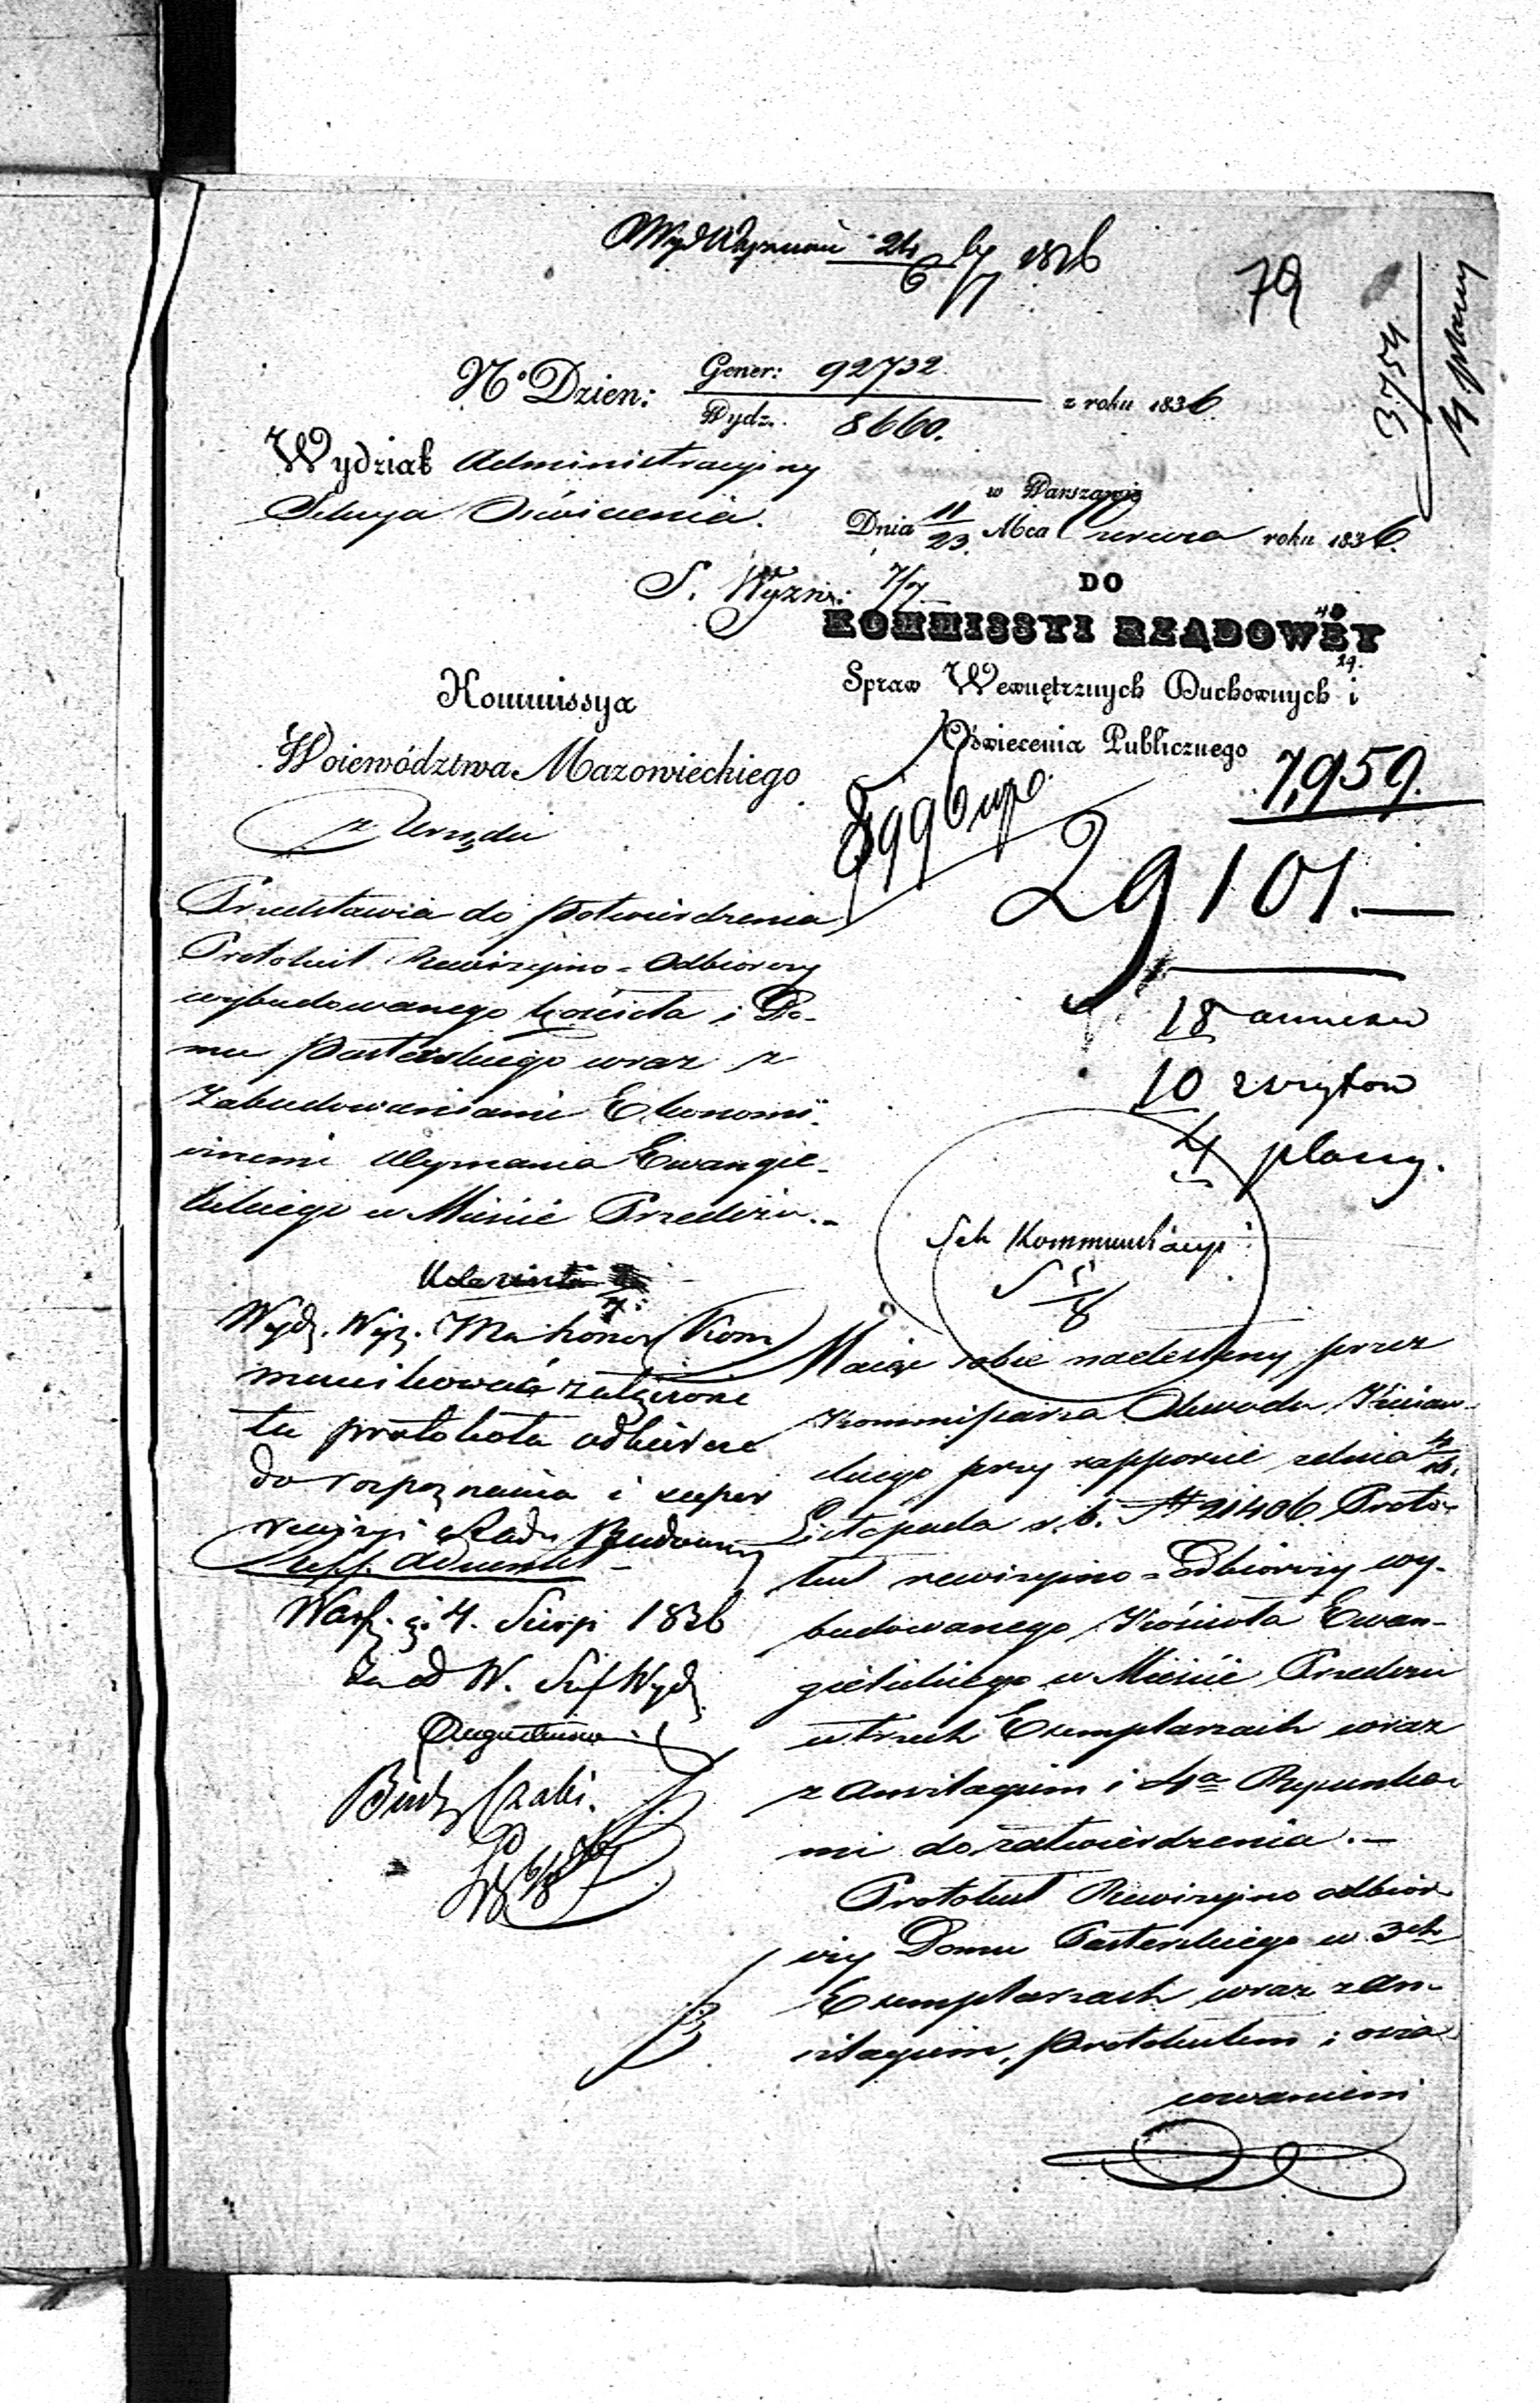 79
3754
4 plany
No Dzien: Gener: 92732.
Wydz. 8660.
z roku 1836
Wydział Administracyiny
Sekcya Oświecenia.
w Warszawie
Dnia 11/23 Mca Czerwca roku 1836.
S. Wyzn: 7/7
DO
KOMMISSYI RZĄDOWEY
Spraw Wewnętrznych Duchownych i
Oświecenia Publicznego
Kommissya
Woiewództwa Mazowieckiego
z Urzędu
7,959.
29101.—
18 annexów
10 zszytów
4 plany.
Przedstawia do potwierdzenia
Protokuł Rewizyino-Odbiorczy
wybudowanego Kościoła i Do-
mu Pasterskiego wraz z
Zabudowaniami Ekonomi-
cznemi Wyznania Ewangie-
lickiego w Mieście Przedczu.-
Wydz. Wyz. Ma honor Kom
munikować załączone
tu protokoła odbiorcze
do rozpoznania i super
rewizyi Rady Budowniczej
Warsz. d. 4. Sierp 1836
Sek Kommunikacyi
Maiąc sobie nadesłany przez
Kommissarza Obwodu Kuiaw-
skiego przy rapporcie z dnia 4/16
Listopada r. b. No 21406. Proto-
kuł rewizyino-Odbiorczy wy-
budowanego Kościoła Ewan-
gielickiego w Mieście Przedczu
w trzech Exemplarzach wraz
z Anszlagiem i 4a Rysunka-
mi do zatwierdzenia.—
Protokuł Rewizyino odbior-
czy Domu Pasterskiego w 3ch
Exemplarzach wraz z An-
szlagiem, Protokułem i